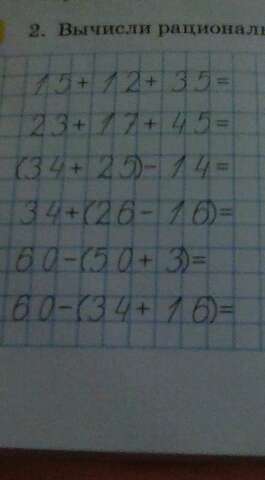 2. Вычисли рациональ
15+12+35=
23+17+45=
(34+25)-14=
34+(26-16)=
60-(50+3)=
60-(34+16)=